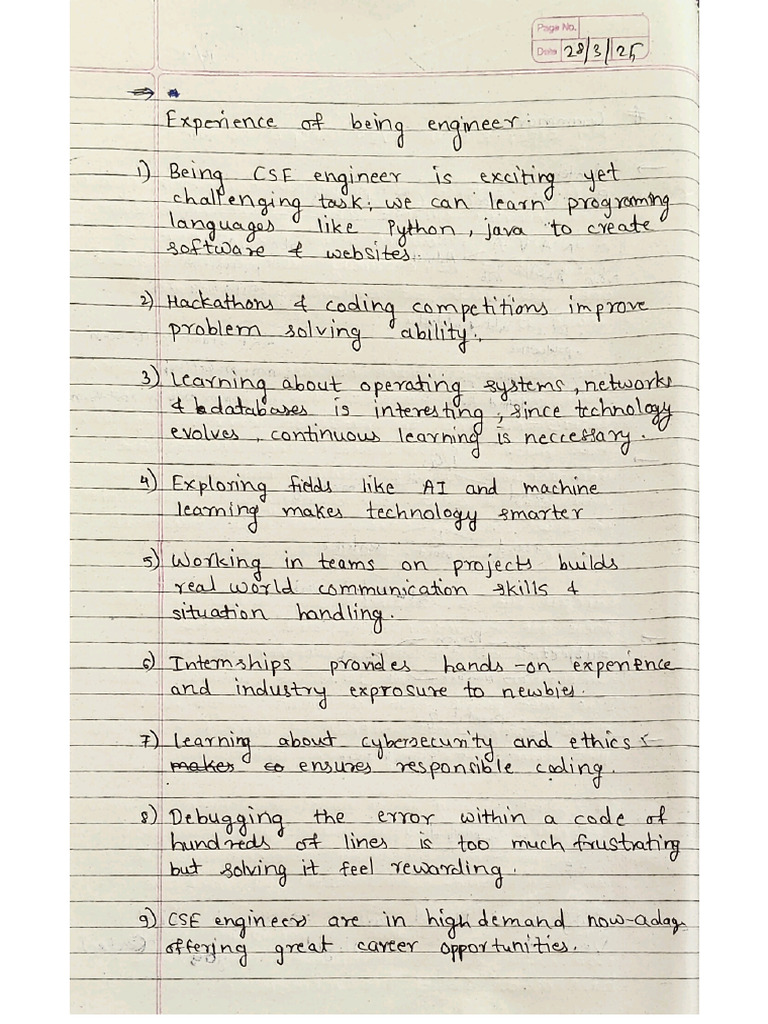 Page No.
Date 28/3/25
Experience of being engineer:
1) Being CSE engineer is exciting yet
challenging task; we can learn programing
languages like Python, java to create
software & websites.
2) Hackathons & coding competitions improve
problem solving ability.
3) Learning about operating systems, networks
& databases is interesting, since technology
evolves, continuous learning is neccessary.
4) Exploring fields like AI and machine
learning makes technology smarter
5) Working in teams on projects builds
real world communication skills &
situation handling.
6) Internships provides hands-on experience
and industry exprosure to newbies.
7) Learning about cybersecurity and ethics
makes co ensures responsible coding.
8) Debugging the error within a code of
hundreds of lines is too much frustrating
but solving it feel rewarding.
9) CSE engineers are in high demand now-adays
offering great career opportunities.